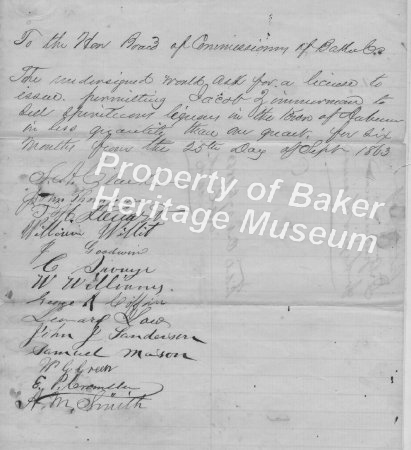 To the Hon Board of Commissioners of Baker Co
The undersigned would ask for a license to
issue permitting Jacob Zimmerman to
sell Spirituous liquors in the town of Auburn
in less quantity than one quart, for six
months from the 25th Day of Sept 1863
Property of Baker
Heritage Museum
William Willit
Goodwin
C
W Williams
George R Coffin
Leonard
John J Sanderson
Samuel Mason
W C Green
A. M. Smith